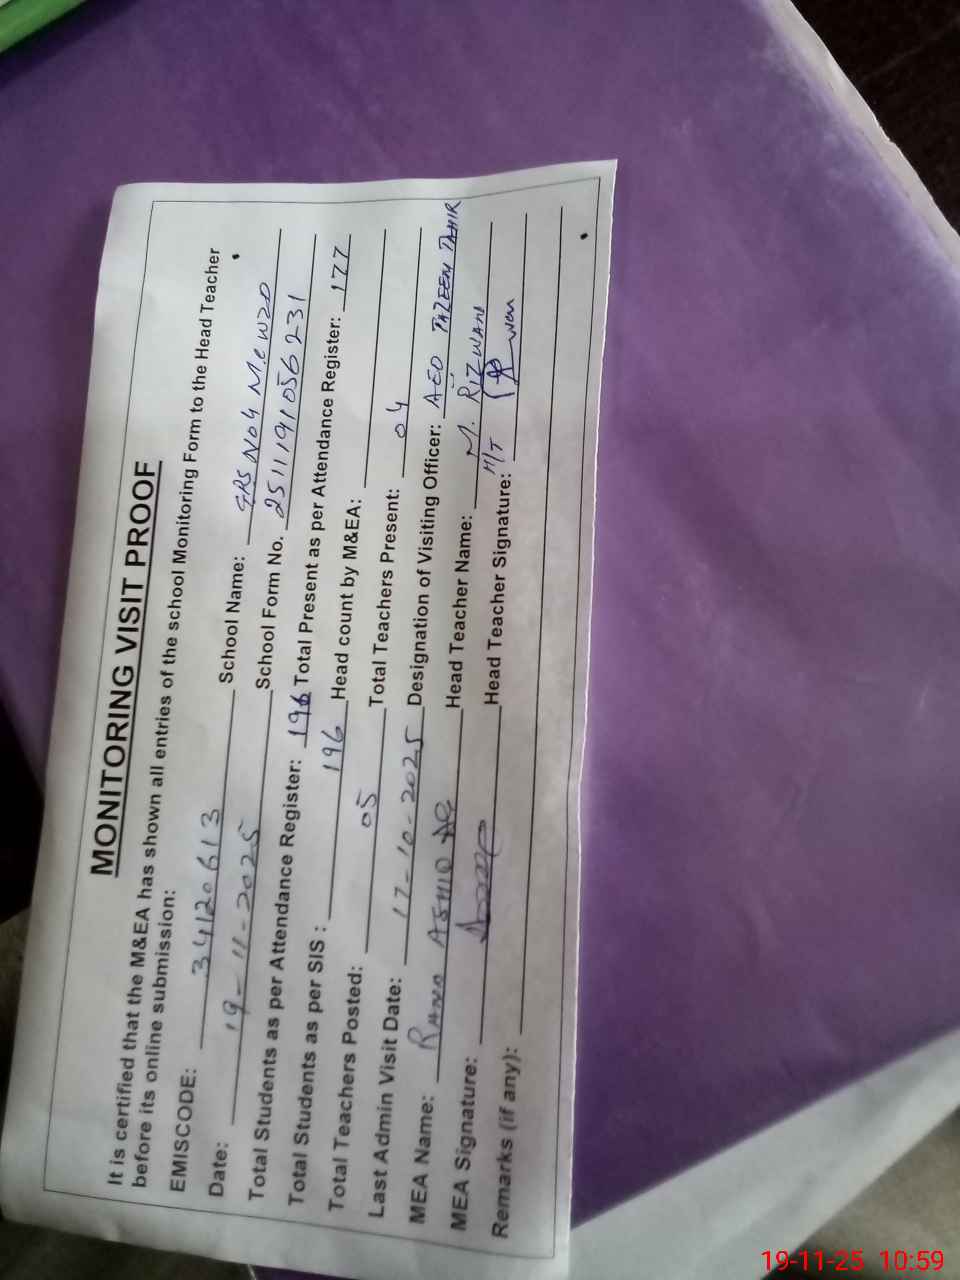 MONITORING VISIT PROOF
It is certified that the M&EA has shown all entries of the school Monitoring Form to the Head Teacher
before its online submission:
EMISCODE: 34120613 School Name: GPS No4 M.
Date: 19-11-2025 School Form No. 2511191056231
Total Students as per Attendance Register: 196 Total Present as per Attendance Register: 177
Total Students as per SIS : 196 Head count by M&EA:
Total Teachers Posted: 05 Total Teachers Present: 04
Last Admin Visit Date: 17-10-2025 Designation of Visiting Officer: AEO TAZEEN TAHIR
MEA Name: Head Teacher Name: M. RIZWAN
MEA Signature: Head Teacher Signature: H/T
Remarks (if any):
19-11-25 10:59